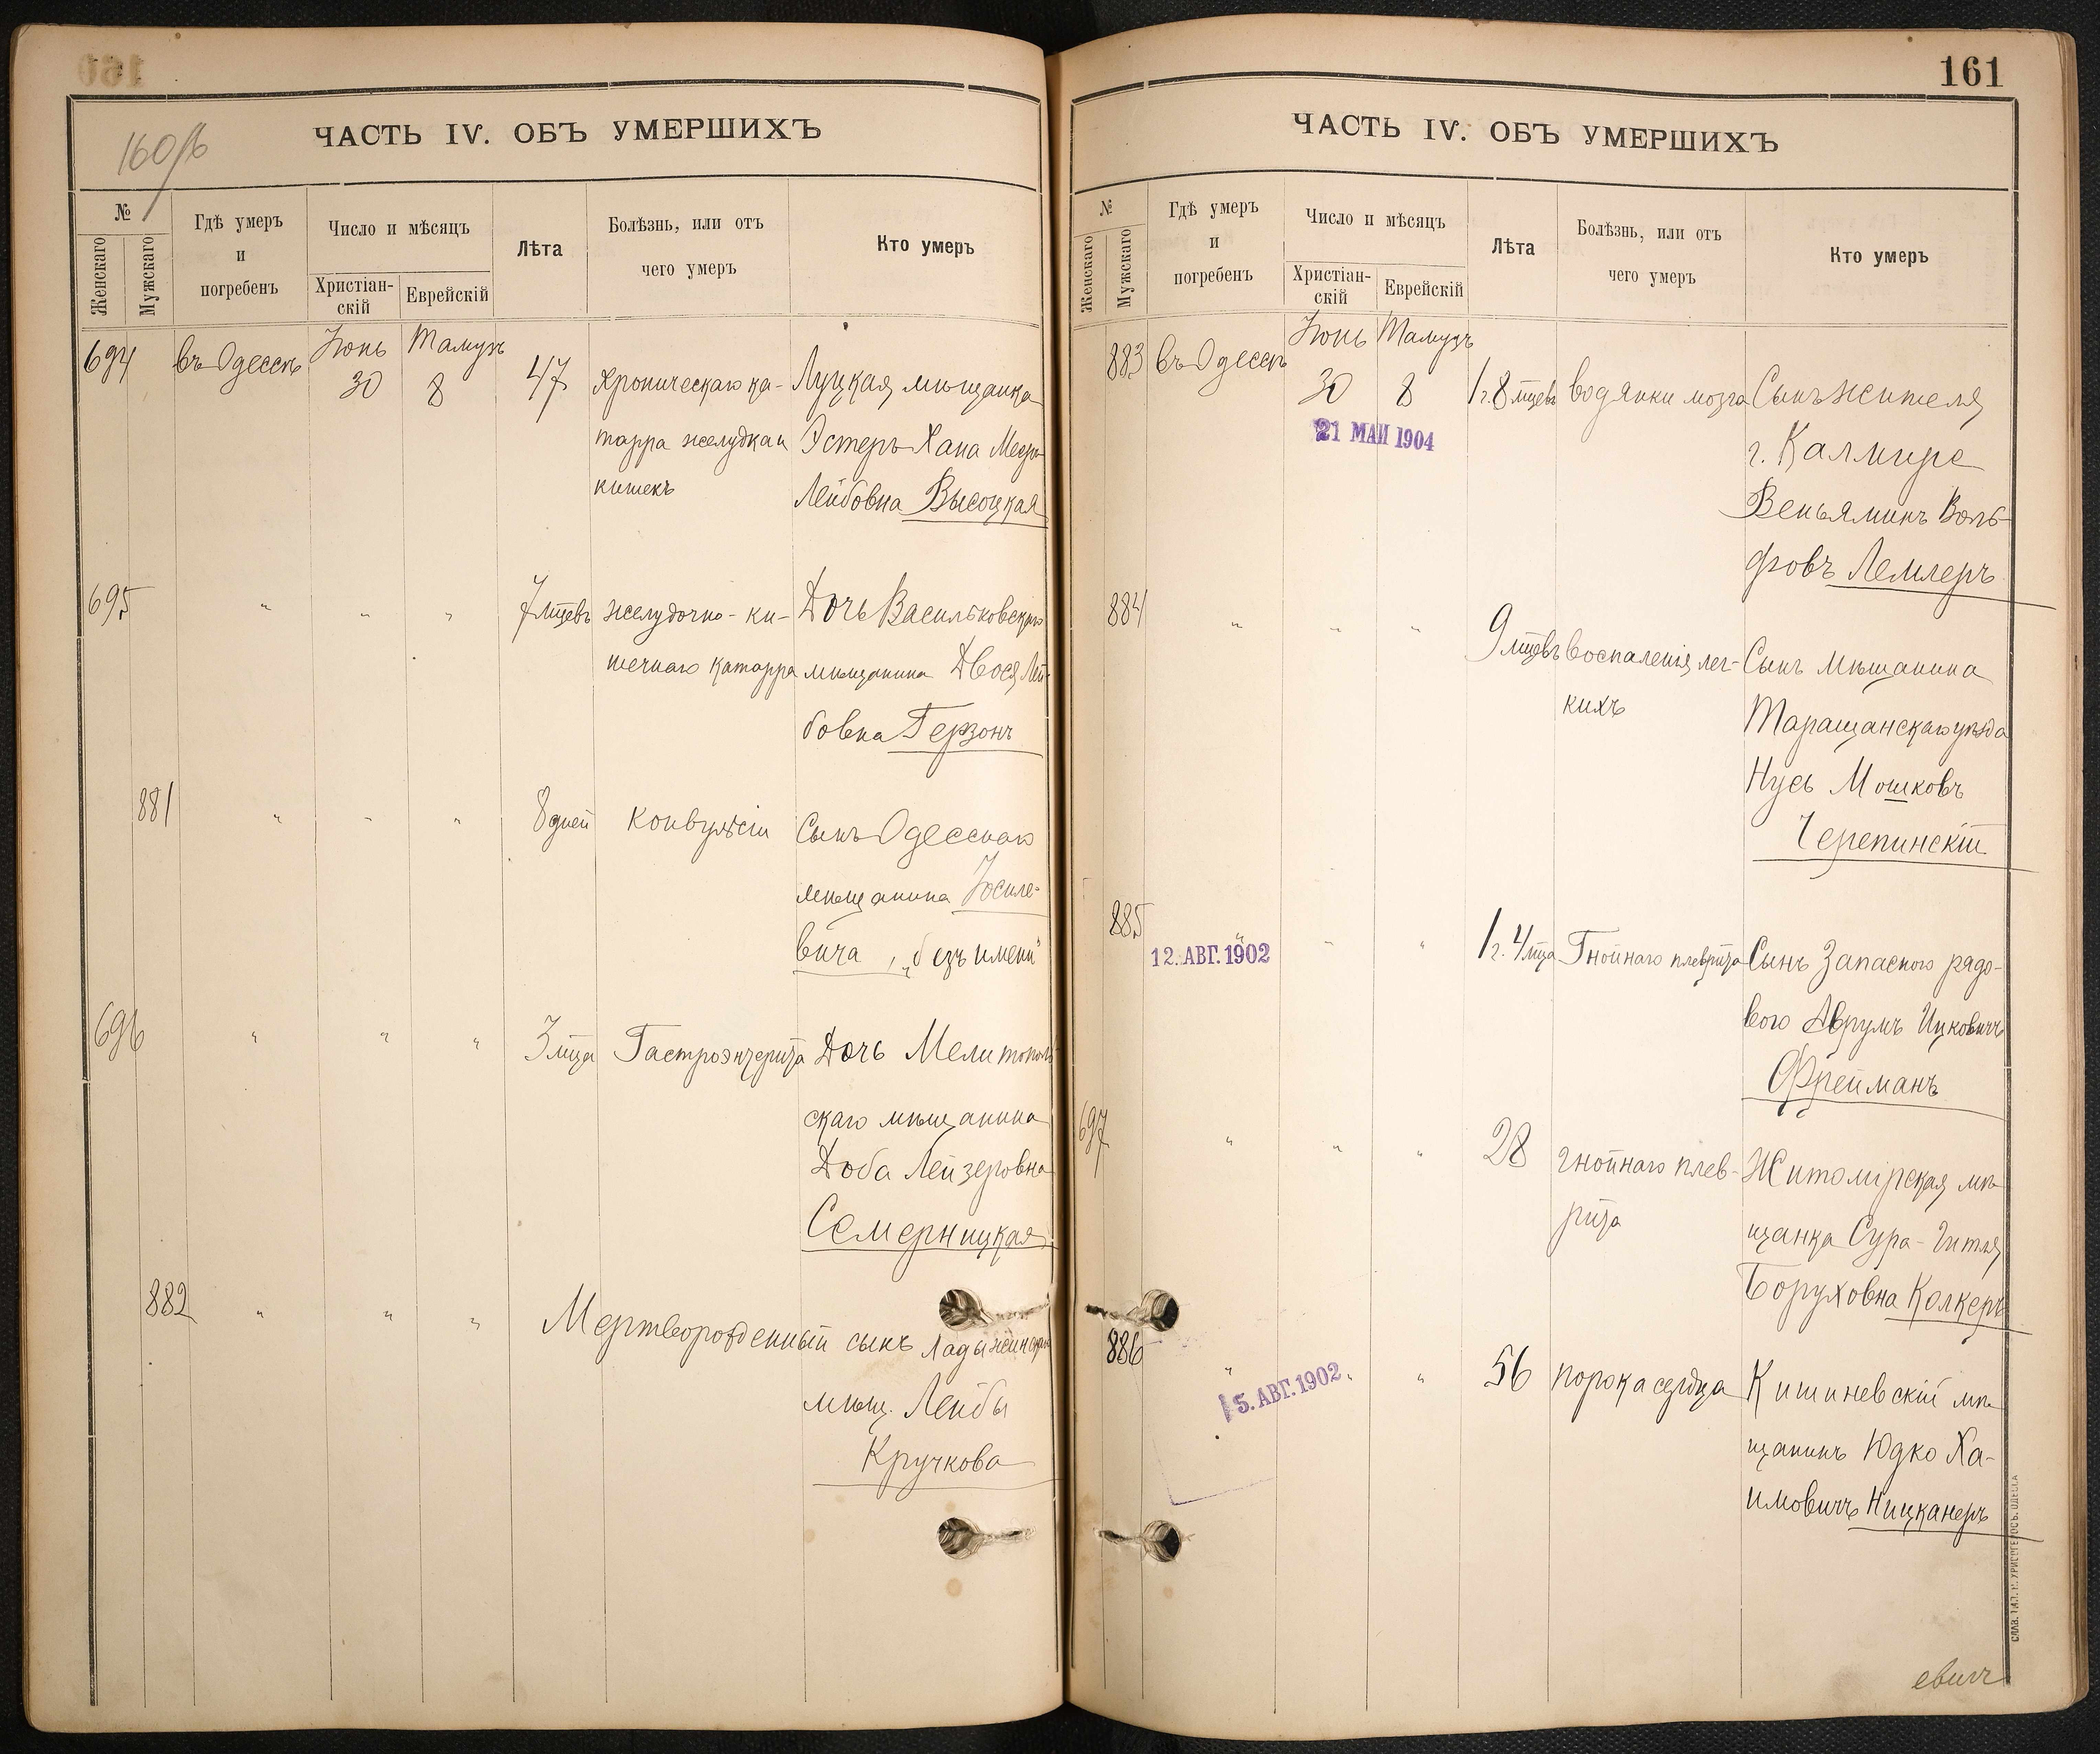 160 об
ЧАСТЬ IV. ОБЪ УМЕРШИХЪ
№
Женскаго
Мужскаго
Гдѣ умеръ
и
погребенъ
Число и мѣсяцъ
Христіан-
скій
Еврейскій
Лѣта
Болѣзнь, или отъ
чего умеръ
Кто умеръ
694 въ Одессѣ Іюнь 30 Тамузъ 8 47 хроническаго ка- Луцкая мѣщанка
тарра желудка и Эстеръ Хана
кишекъ Лейбовна Высоцкая
695 " " " 7 мцевъ желудочно-ки- Дочь Васильковскаго
шечнаго катарра мѣщанина Двося Лей-
бовна Герзонъ
881 " " " 8 дней Конвульсіи Сынъ Одесскаго
мѣщанина Іосиле-
вича, „безъ имени"
696 " " " 3 мца Гастроэнтерита Дочь Мелитополь
скаго мѣщанина
Доба Лейзеровна
Семерницкая
882 " " " Мертворожденный сынъ
мѣщ. Лейбы
Кручкова
161
ЧАСТЬ IV. ОБЪ УМЕРШИХЪ
№
Женскаго
Мужскаго
Гдѣ умеръ
и
погребенъ
Число и мѣсяцъ
Христіан-
скій
Еврейскій
Лѣта
Болѣзнь, или отъ
чего умеръ
Кто умеръ
883 въ Одессѣ Іюнь 30 Тамузъ 8 1 г. 8 мцевъ водянки мозга Сынъ жителя
21 МАИ 1904
г. Калмире
Веньяминъ Воль-
фовъ Лемлеръ
884 " " " 9 мцевъ воспаленія лег- Сынъ мѣщанина
кихъ Таращанскаго уѣзда
Нусь Мошковъ
Черепинскій
885 " " " 1 г. 4 мца Гнойнаго плеврита Сынъ Запасного рядо-
12. АВГ. 1902
вого Аврумъ Ицковичъ
Фрейманъ
697 " " " 28 гнойнаго плев- Житомірская мѣ
рита щанка Сура-Гитля
Боруховна Колкеръ
886 " " " 56 порока сердца Кишиневскій мѣ
15. АВГ. 1902.
щанинъ Юдко Ха-
имовичъ Ницканеръ
евичъ